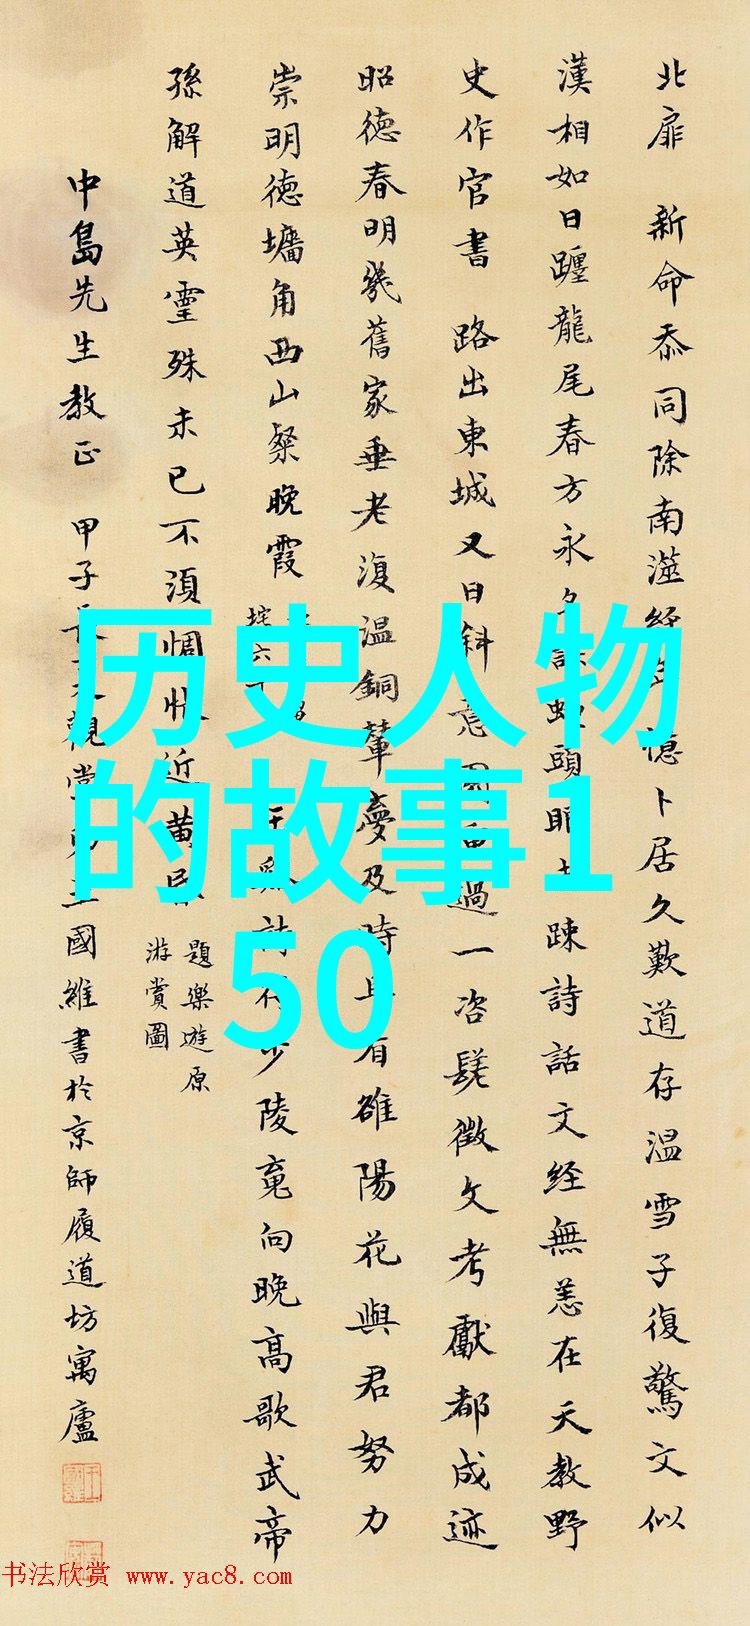 北扉 新命忝同除南澨經憶卜居久歎道存温雪子復驚文似
漢相如日躔龍尾春方永夕頭踈詩話文经無恙在天教野
史作官書 路出東城又日斜意過一咨髦徵文考獻都成迹
昭德春明幾舊家垂老復温銅輦夢及時且看雒陽花與君努力
崇明德墉角西山粲晚霞 少陵竟向晚高歌武帝
孫解道英靈殊未已不須惆悵近黄昏
題樂遊原
游賞圖
中島先生教正 甲子長夏觀堂弟王國維書於京師履道坊寓廬
历史人物
的故事1
50
书法欣赏 www.yac8.com